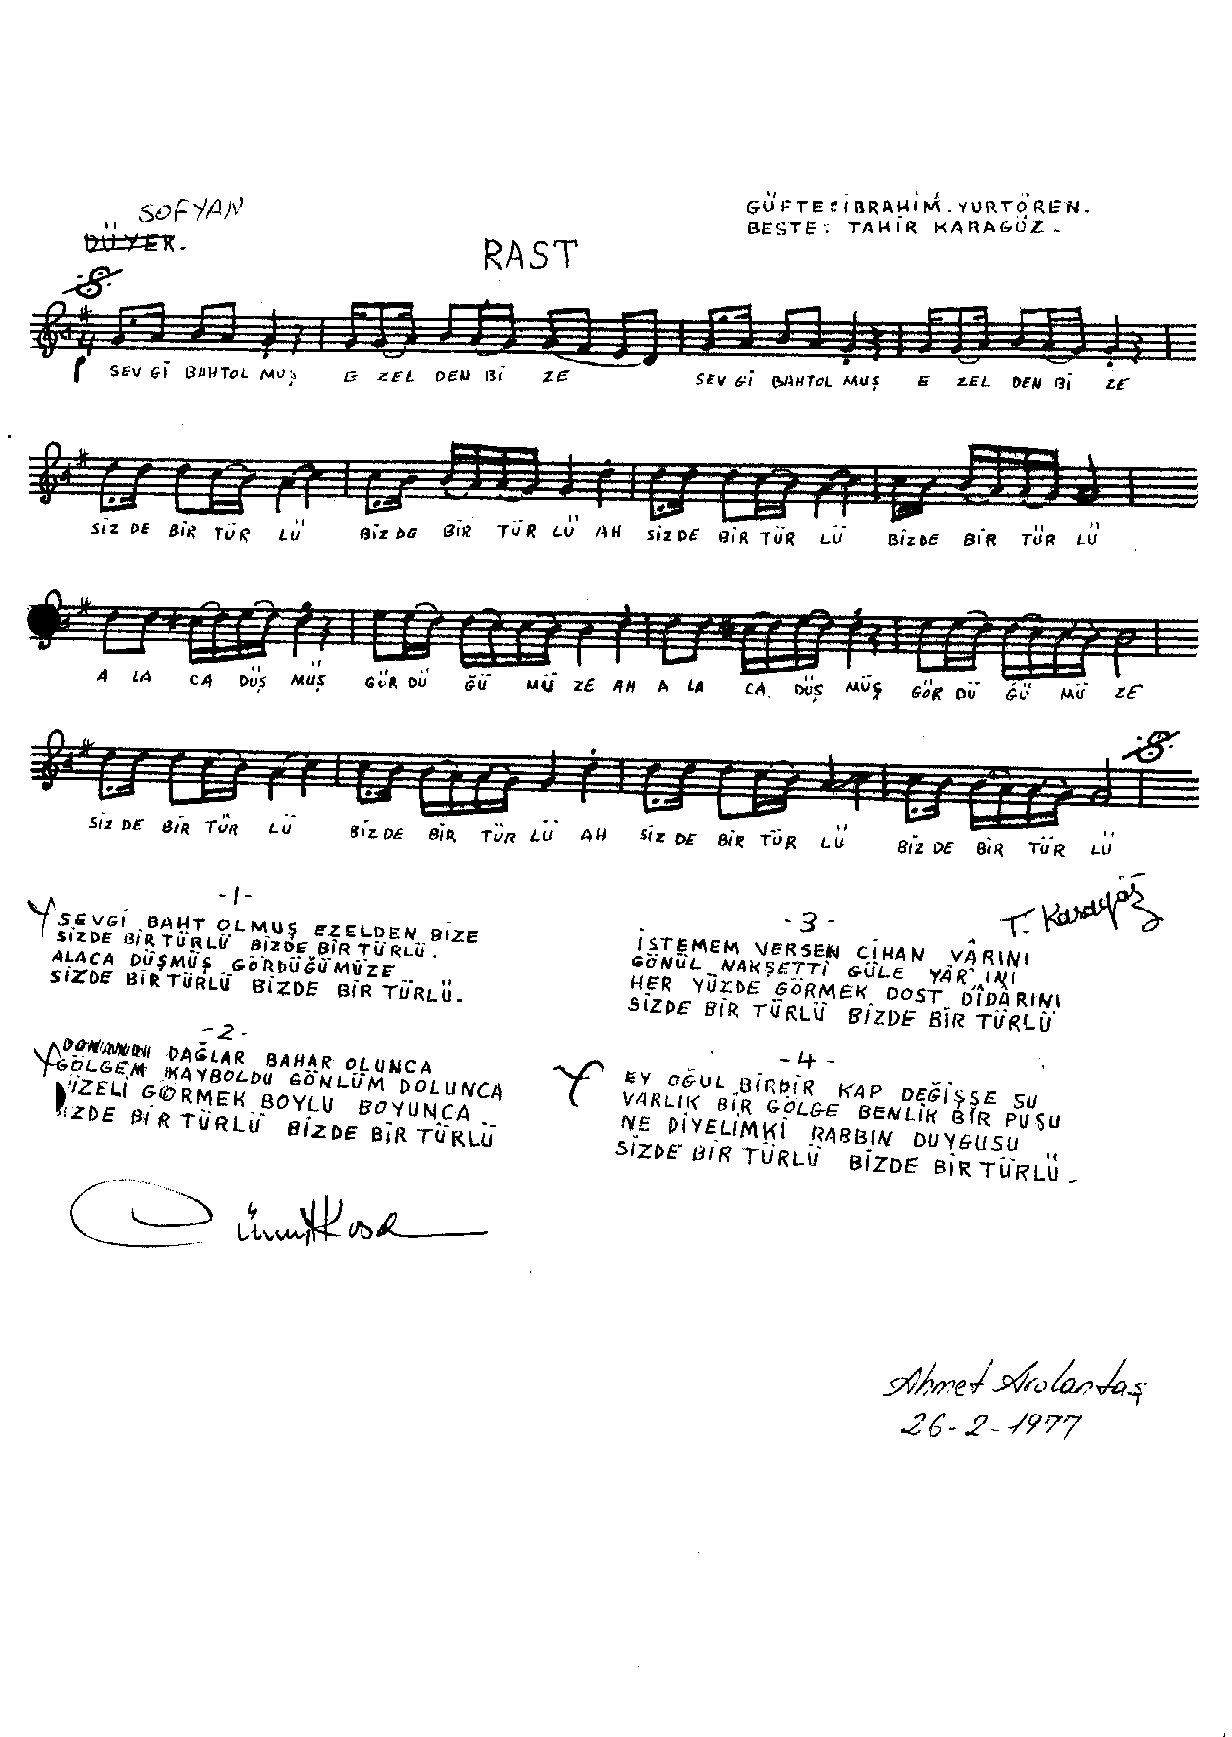 SOFYAN
DÜYEK.
GÜFTE: İBRAHİM. YURTÖREN.
BESTE: TAHİR KARAGÖZ.
RAST
SEV Gİ BAHTOL MUŞ E ZEL DEN Bİ ZE SEV Gİ BAHTOL MUŞ E ZEL DEN Bİ ZE
SİZ DE BİR TÜR LÜ BİZ DE BİR TÜR LÜ AH SİZ DE BİR TÜR LÜ BİZ DE BİR TÜR LÜ
A LA CA DÜŞ MÜŞ GÖR DÜ ĞÜ MÜ ZE AH A LA CA DÜŞ MÜŞ GÖR DÜ ĞÜ MÜ ZE
SİZ DE BİR TÜR LÜ BİZ DE BİR TÜR LÜ AH SİZ DE BİR TÜR LÜ BİZ DE BİR TÜR LÜ
-1-
SEVGİ BAHT OLMUŞ EZELDEN BİZE
SİZDE BİR TÜRLÜ BİZDE BİR TÜRLÜ.
ALACA DÜŞMÜŞ GÖRDÜĞÜMÜZE
SİZDE BİR TÜRLÜ BİZDE BİR TÜRLÜ.
-2-
DAĞLAR BAHAR OLUNCA
GÖLGEM KAYBOLDU GÖNLÜM DOLUNCA
GÖRMEK BOYLU BOYUNCA
İZDE BİR TÜRLÜ BİZDE BİR TÜRLÜ
T. Karagöz
-3-
İSTEMEM VERSEN CİHAN VÂRINI
GÖNÜL NAKŞETTİ GÜLE YÂR İNİ
HER YÜZDE GÖRMEK DOST DİDÂRINI
SİZDE BİR TÜRLÜ BİZDE BİR TÜRLÜ
-4-
EY OĞUL BİRDİR KAP DEĞİŞSE SU
VARLIK BİR GÖLGE BENLİK BİR PUSU
NE DİYELİMKİ RABBIN DUYGUSU
SİZDE BİR TÜRLÜ BİZDE BİR TÜRLÜ.
Ahmet Arslantaş
26-2-1977